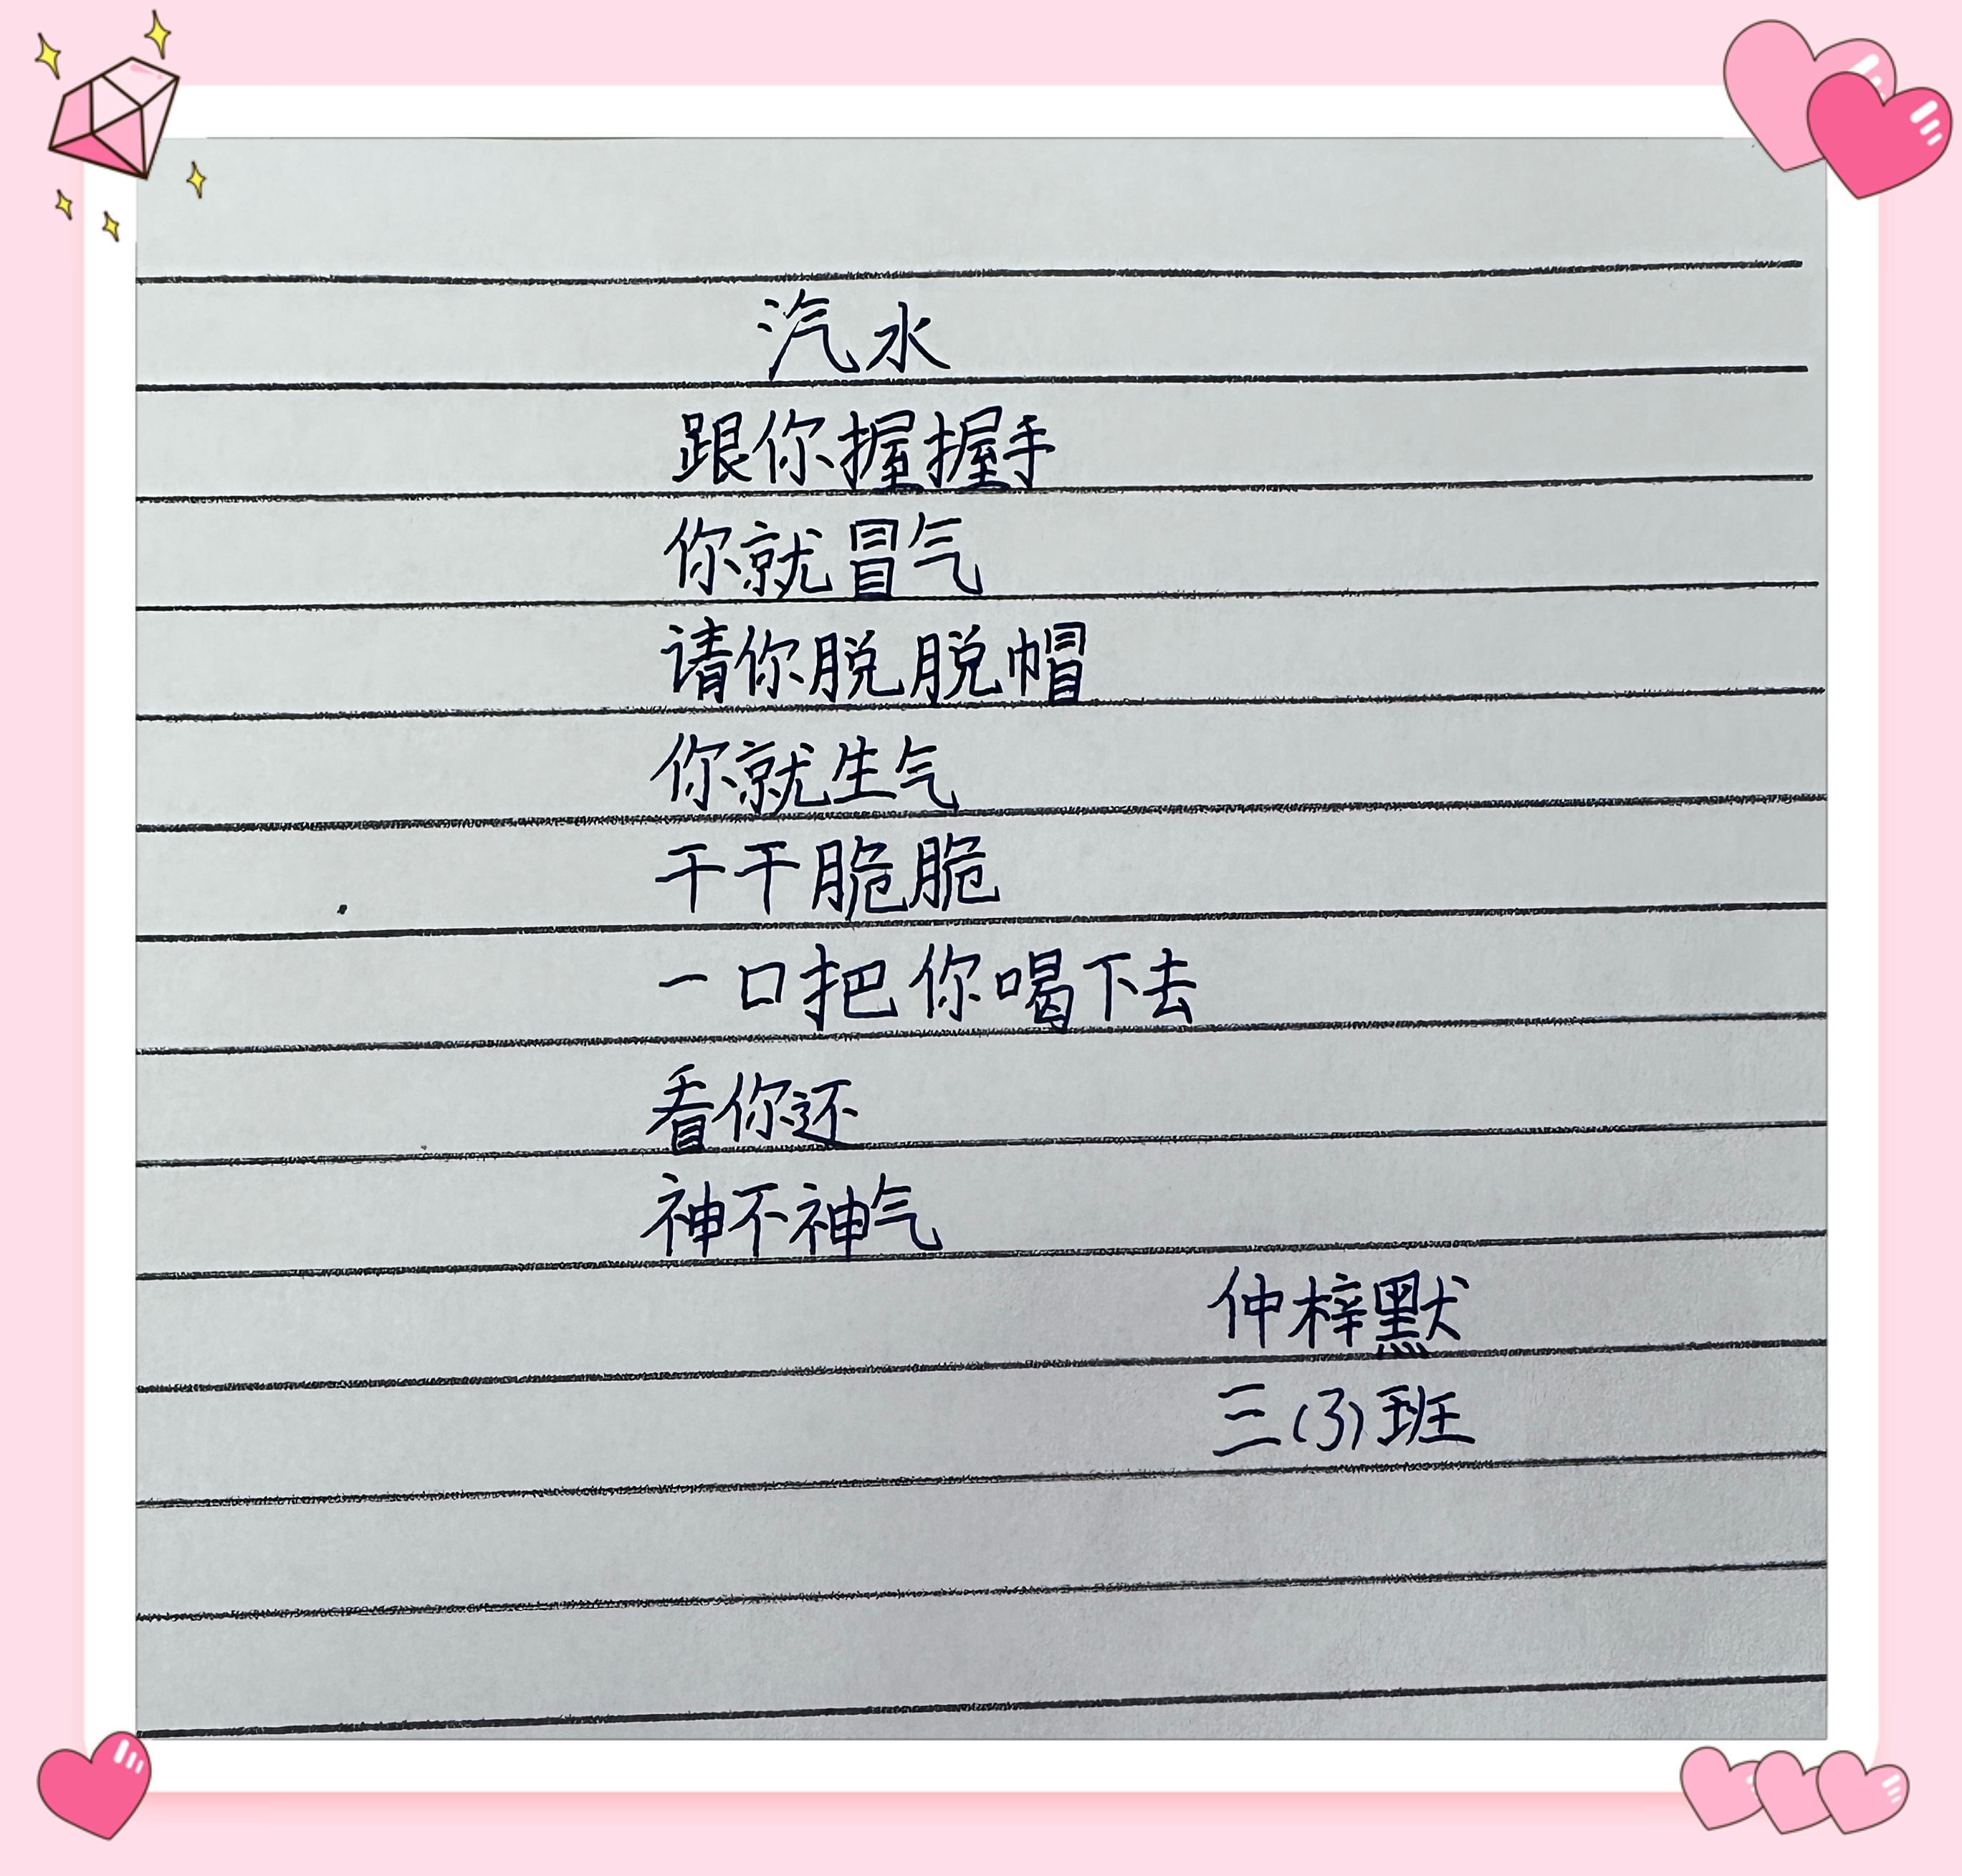 汽水
跟你握握手
你就冒气
请你脱脱帽
你就生气
干干脆脆
一口把你喝下去
看你还
神不神气
仲梓默
三(3)班